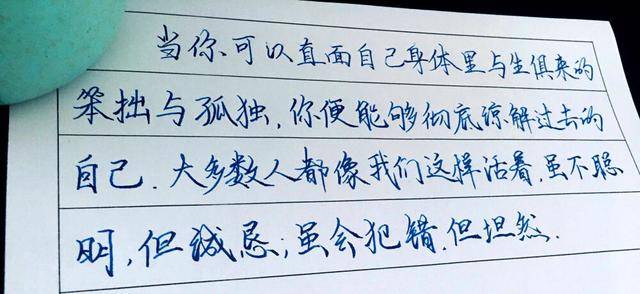 当你可以直面自己身体里与生俱来的
笨拙与孤独,你便能够彻底谅解过去的
自己.大多数人都像我们这样活着,虽不聪
明,但诚恳;虽会犯错,但坦然.